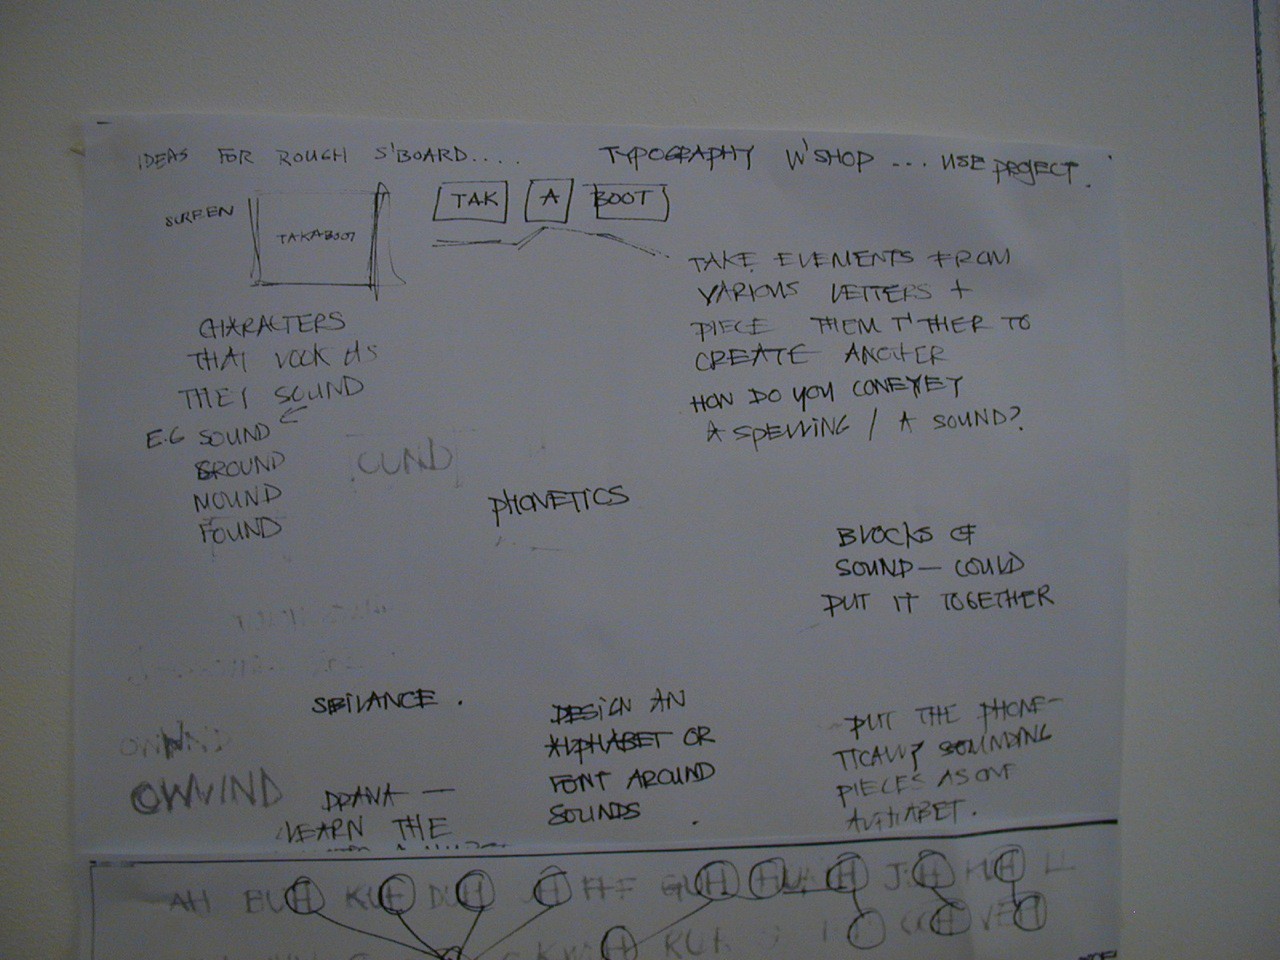 IDEAS FOR ROUGH S'BOARD....
TYPOGRAPHY W'SHOP ... USE PROJECT.
SCREEN
TAKABOOT
TAK A BOOT
CHARACTERS
THAT LOOK AS
THEY SOUND
E.G SOUND
GROUND
MOUND
FOUND
OUND
TAKE ELEMENTS FROM
VARIOUS LETTERS +
PIECE THEM T'THER TO
CREATE ANOTHER
HOW DO YOU CONEVEY
A SPELLING / A SOUND?
PHONETICS
BLOCKS OF
SOUND — COULD
PUT IT TOGETHER
SBILANCE.
DRAMA —
LEARN THE
DESIGN AN
ALPHABET OR
FONT AROUND
SOUNDS.
PUT THE PHONE-
TICALLY SOUNDING
PIECES AS ONE
ALPHABET.
AH BUH KUH DUH FFF GUH